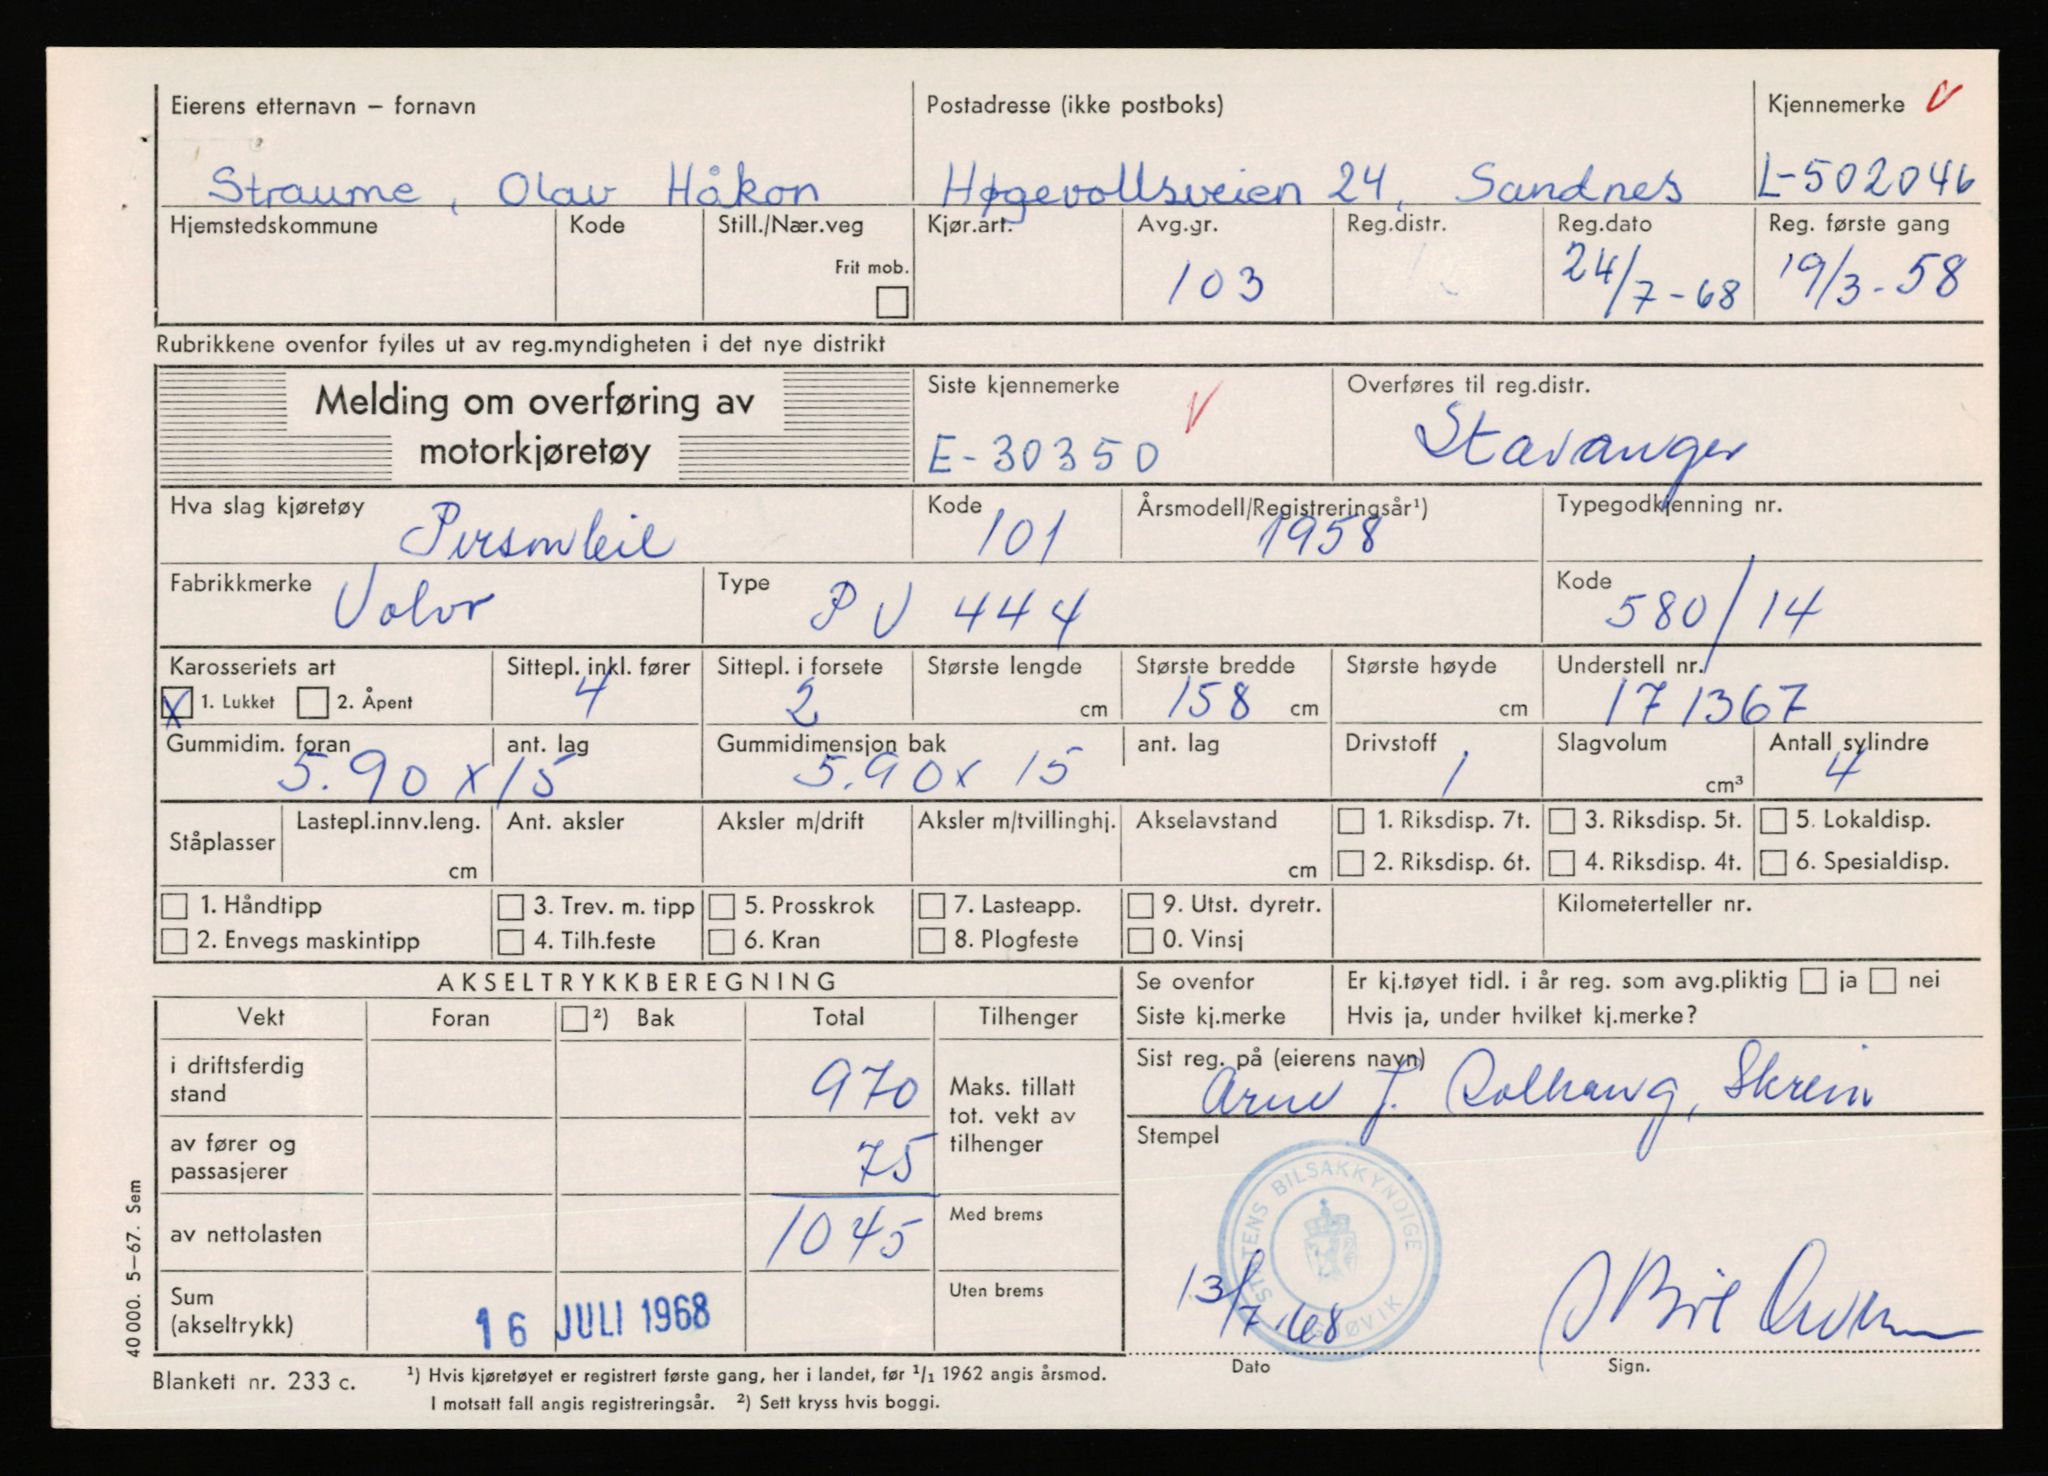 Eierens etternavn – fornavn
Straume, Olav Håkon
Postadresse (ikke postboks)
Høgevollsveien 24, Sandnes
Kjennemerke V
L-502046
Hjemstedskommune
Kode
Still./Nær.veg
Frit mob.
Kjør.art.
Avg.gr.
103
Reg.distr.
Reg.dato
24/7-68
Reg. første gang
19/3-58
Rubrikkene ovenfor fylles ut av reg.myndigheten i det nye distrikt
Melding om overføring av
motorkjøretøy
Siste kjennemerke V
E-30350
Overføres til reg.distr.
Stavanger
Hva slag kjøretøy
Personbil
Kode
101
Årsmodell/Registreringsår¹)
1958
Typegodkjenning nr.
Fabrikkmerke
Volvo
Type
PV 444
Kode
580/14
Karosseriets art
X 1. Lukket 2. Åpent
Sittepl. inkl. fører
4
Sittepl. i forsete
2
Største lengde
cm
Største bredde
158 cm
Største høyde
cm
Understell nr.
171367
Gummidim. foran ant. lag
5.90 x 15
Gummidimensjon bak ant. lag
5.90 x 15
Drivstoff
1
Slagvolum
cm³
Antall sylindre
4
Ståplasser
Lastepl.innv.leng.
cm
Ant. aksler
Aksler m/drift
Aksler m/tvillinghj.
Akselavstand
cm
1. Riksdisp. 7t. 3. Riksdisp. 5t. 5. Lokaldisp.
2. Riksdisp. 6t. 4. Riksdisp. 4t. 6. Spesialdisp.
1. Håndtipp 3. Trev. m. tipp 5. Prosskrok 7. Lasteapp. 9. Utst. dyretr.
2. Envegs maskintipp 4. Tilh.feste 6. Kran 8. Plogfeste 0. Vinsj
Kilometerteller nr.
AKSELTRYKKBEREGNING
Vekt Foran ²) Bak Total Tilhenger
i driftsferdig
stand
970
av fører og
passasjerer
75
av nettolasten
1045
Sum
(akseltrykk)
16 JULI 1968
Maks. tillatt
tot. vekt av
tilhenger
Med brems
Uten brems
Se ovenfor
Siste kj.merke
Er kj.tøyet tidl. i år reg. som avg.pliktig ja nei
Hvis ja, under hvilket kj.merke?
Sist reg. på (eierens navn)
Arne J. Skrein
Stempel
STATENS BILSAKKYNDIGE
GJØVIK
13/7.68
Dato
Sign.
40 000. 5–67. Sem
Blankett nr. 233 c.
¹) Hvis kjøretøyet er registrert første gang, her i landet, før ¹/₁ 1962 angis årsmod.
I motsatt fall angis registreringsår. ²) Sett kryss hvis boggi.